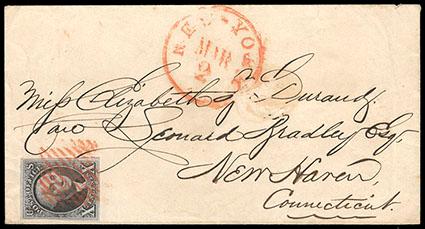 NEW-YORK
MAR
2
Miss Elizabeth C. Durand,
Care Leonard Bradley Esq.
New Haven
Connecticut.
POST OFFICE